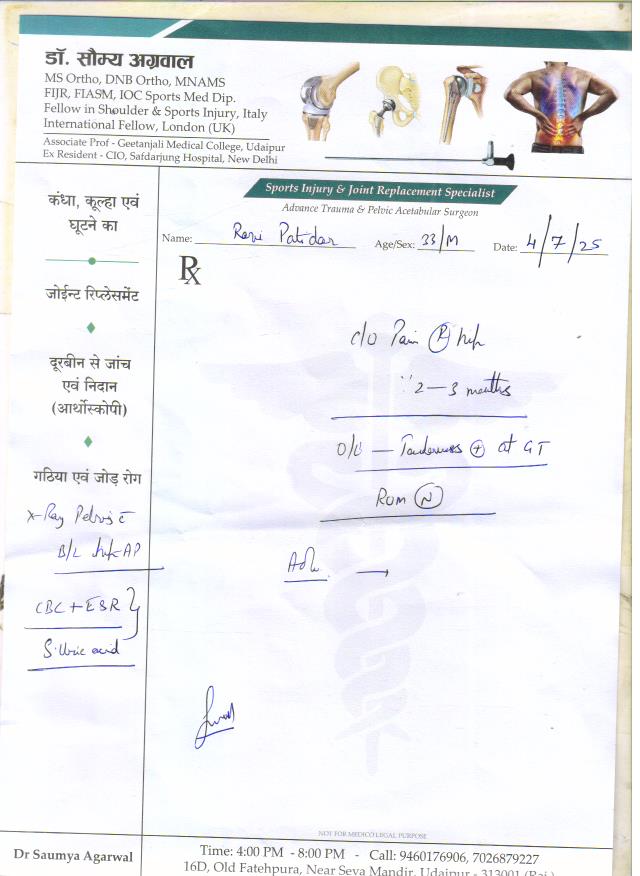 डॉ. सौम्य अग्रवाल
MS Ortho, DNB Ortho, MNAMS
FIJR, FIASM, IOC Sports Med Dip.
Fellow in Shoulder & Sports Injury, Italy
International Fellow, London (UK)
Associate Prof - Geetanjali Medical College, Udaipur
Ex Resident - CIO, Safdarjung Hospital, New Delhi
Sports Injury & Joint Replacement Specialist
Advance Trauma & Pelvic Acetabular Surgeon
Name: Ravi Patidar Age/Sex: 33/M Date: 4/7/25
Rx
कंधा, कूल्हा एवं
घूटने का
जोईन्ट रिप्लेसमेंट
दूरबीन से जांच
एवं निदान
(आर्थोस्कोपी)
गठिया एवं जोड़ रोग
X-Ray Pelvis c̄
B/L hip AP
CBC + ESR
S. Uric acid
c/o Pain (R) hip
2-3 months
O/E - Tenderness (+) at GT
ROM (N)
Adv. →
NOT FOR MEDICO LEGAL PURPOSE
Dr Saumya Agarwal
Time: 4:00 PM - 8:00 PM - Call: 9460176906, 7026879227
16D, Old Fatehpura, Near Seva Mandir, Udaipur - 313001 (Raj.)